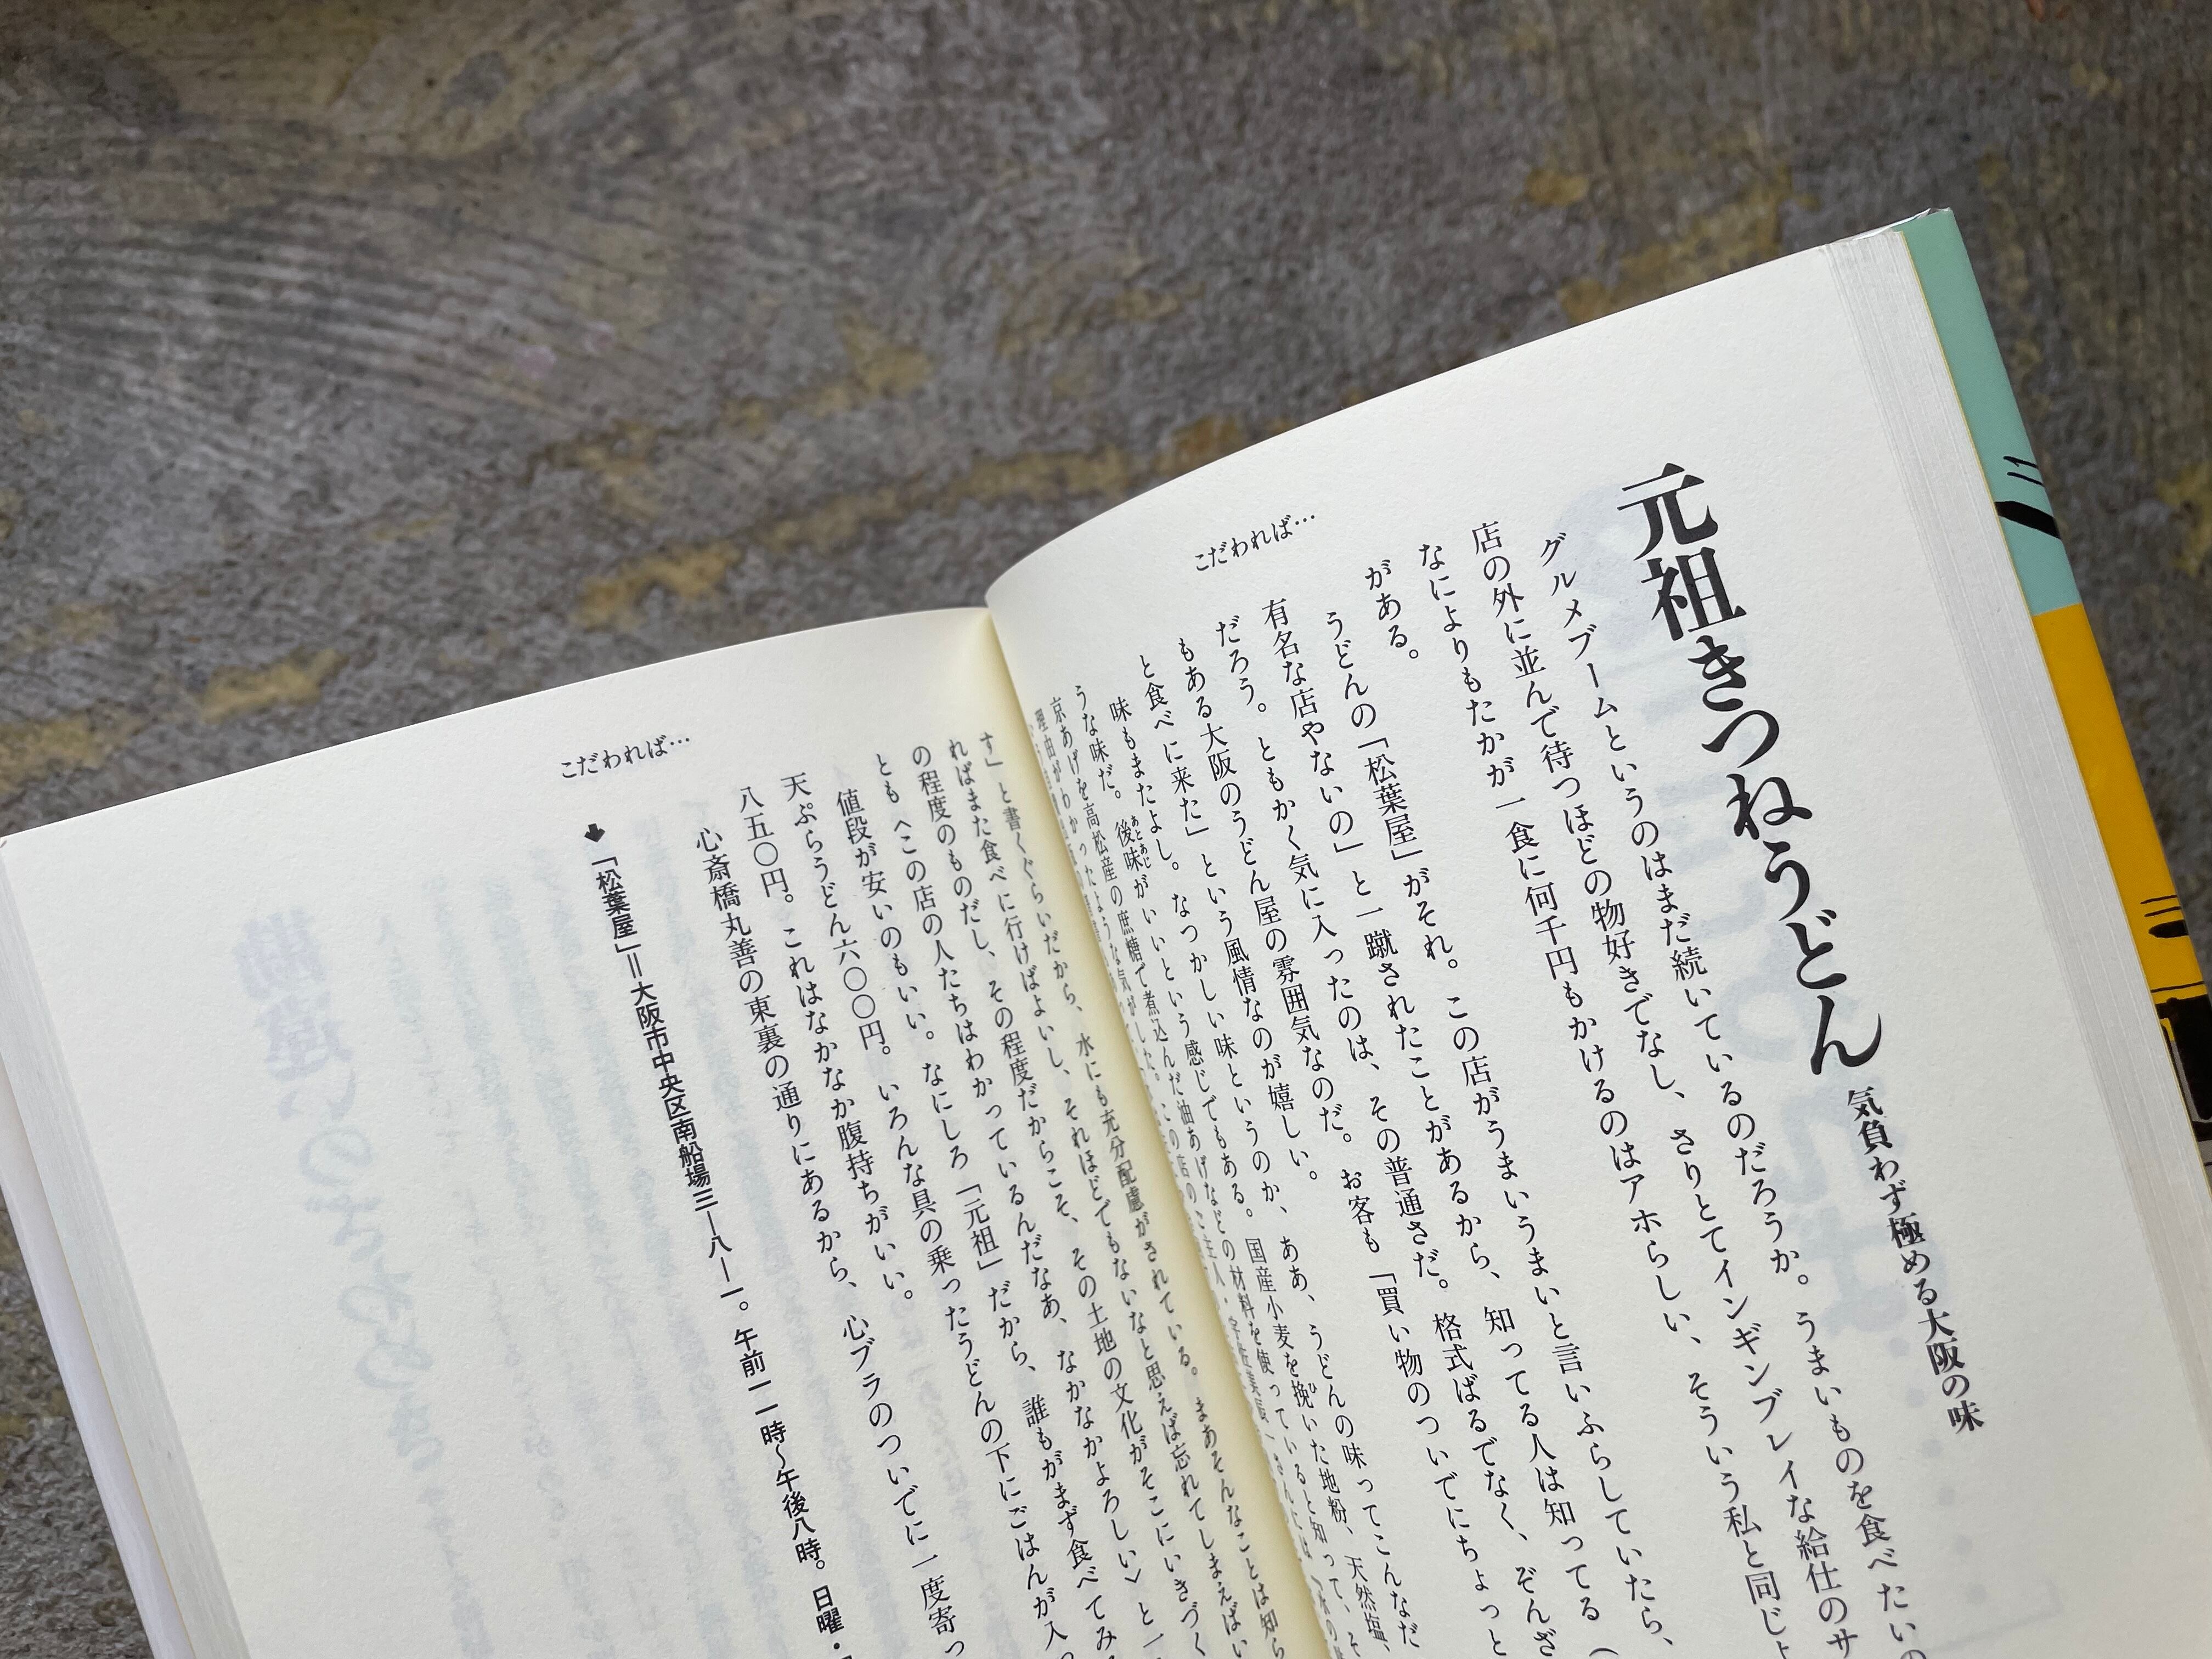 こだわれば…
元祖きつねうどん 気負わず極める大阪の味
グルメブームというのはまだ続いているのだろうか。うまいものを食べたいの
店の外に並んで待つほどの物好きでなし、さりとてインギンブレイな給仕のサ
なによりもたかが一食に何千円もかけるのはアホらしい、そういう私と同じよ
がある。
うどんの「松葉屋」がそれ。この店がうまいうまいと言いふらしていたら、
有名な店やないの」と一蹴されたことがあるから、知ってる人は知ってる（
だろう。ともかく気に入ったのは、その普通さだ。格式ばるでなく、ぞんざ
もある大阪のうどん屋の雰囲気なのだ。お客も「買い物のついでにちょっと
と食べに来た」という風情なのが嬉しい。
味もまたよし。なつかしい味というのか、ああ、うどんの味ってこんなだ
うな味だ。後味がいいという感じでもある。国産小麦を挽いた地粉、天然塩、
京あげを高松産の庶糖で煮込んだ油あげなどの材料を使っていると知って、そ
理由がわかったような気がした。
こだわれば…
す」と書くぐらいだから、水にも充分配慮がされている。まあそんなことは知ら
ればまた食べに行けばよいし、それほどでもないなと思えば忘れてしまえばい
の程度のものだし、その程度だからこそ、その土地の文化がそこにいきづく
とも〈この店の人たちはわかっているんだなあ、なかなかよろしい〉と一
値段が安いのもいい。なにしろ「元祖」だから、誰もがまず食べてみ
天ぷらうどん六〇〇円。いろんな具の乗ったうどんの下にごはんが入っ
八五〇円。これはなかなか腹持ちがいい。
心斎橋丸善の東裏の通りにあるから、心ブラのついでに一度寄っ
「松葉屋」＝大阪市中央区南船場三―八―一。午前一一時～午後八時。日曜・